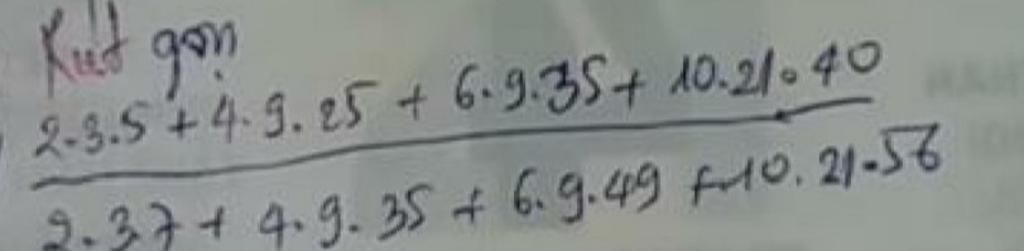 Rút gọn
2.3.5 + 4.9.25 + 6.9.35 + 10.21.40
2.3.7 + 4.9.35 + 6.9.49 + 10.21.56